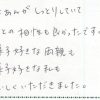 あんがしっとりしていて
との相性も良かったです
菓子好きな両親も
菓子好きな私も
しくいただきました。